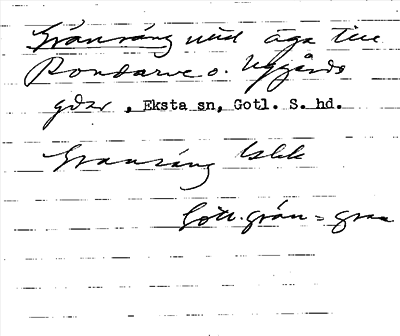 Gransäng vid äga till
Rondarve o. Uggårds
gdar, Eksta sn, Gotl. S. hd.
Gransäng
Gotl. grån = gran